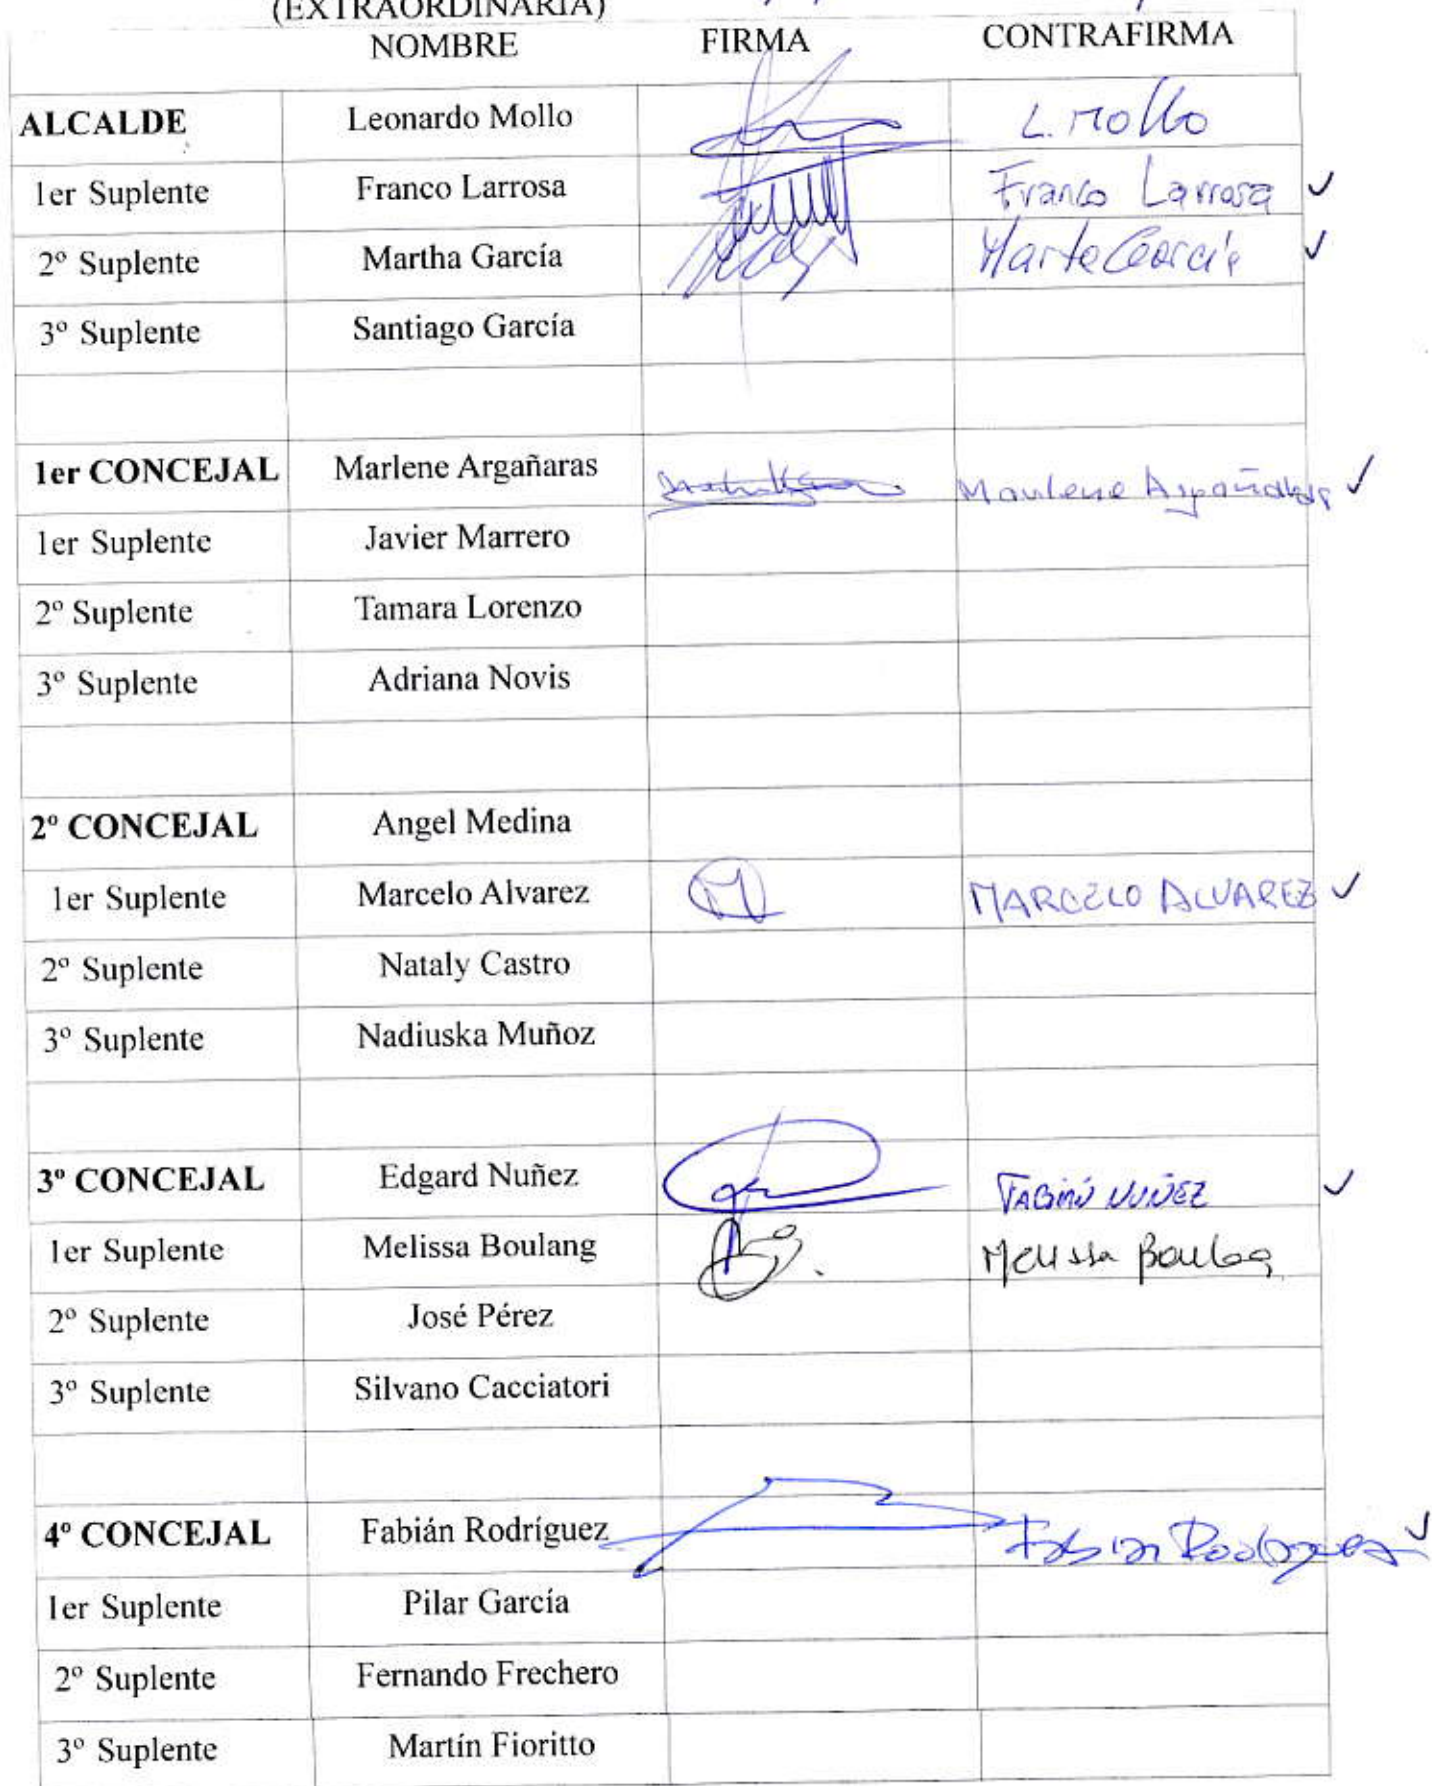 (EXTRAORDINARIA)
NOMBRE FIRMA CONTRAFIRMA
ALCALDE Leonardo Mollo L. Mollo
1er Suplente Franco Larrosa Franco Larrosa
2º Suplente Martha García Marta García
3º Suplente Santiago García
1er CONCEJAL Marlene Argañaras Marlene Argañaras
1er Suplente Javier Marrero
2º Suplente Tamara Lorenzo
3º Suplente Adriana Novis
2º CONCEJAL Angel Medina
1er Suplente Marcelo Alvarez MARCELO ALVAREZ
2º Suplente Nataly Castro
3º Suplente Nadiuska Muñoz
3º CONCEJAL Edgard Nuñez FABIÁN NUÑEZ
1er Suplente Melissa Boulang Melissa Boulang
2º Suplente José Pérez
3º Suplente Silvano Cacciatori
4º CONCEJAL Fabián Rodríguez Fabian Rodriguez
1er Suplente Pilar García
2º Suplente Fernando Frechero
3º Suplente Martín Fioritto